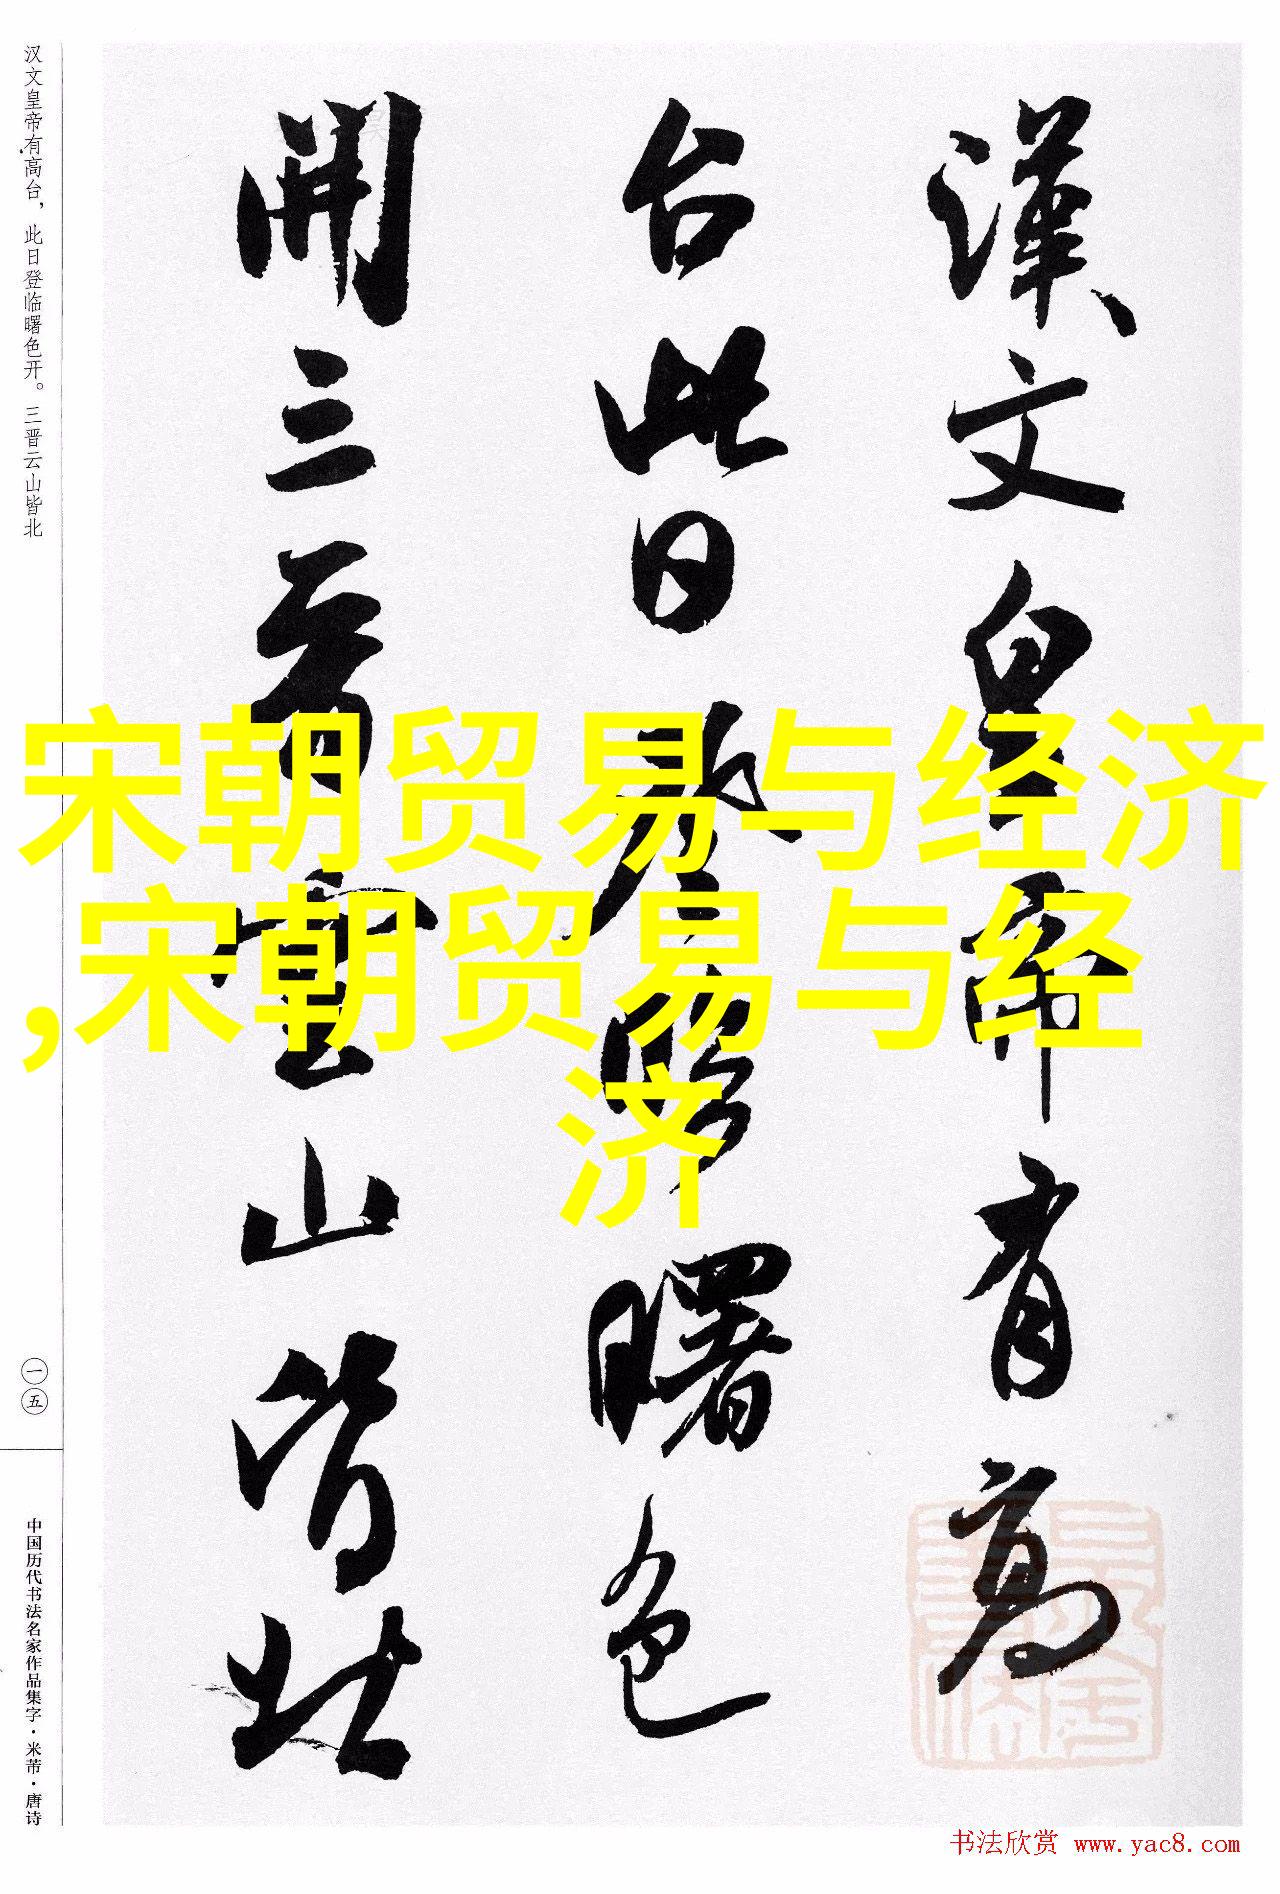 漢文皇帝有高
台此日登臨曙色
開三晋雲山皆北
宋朝贸易与经济
,宋朝贸易与经
济
汉文皇帝有高台，此日登临曙色开。三晋云山皆北
一五
中国历代书法名家作品集字·米芾·唐诗
书法欣赏 www.yac8.com